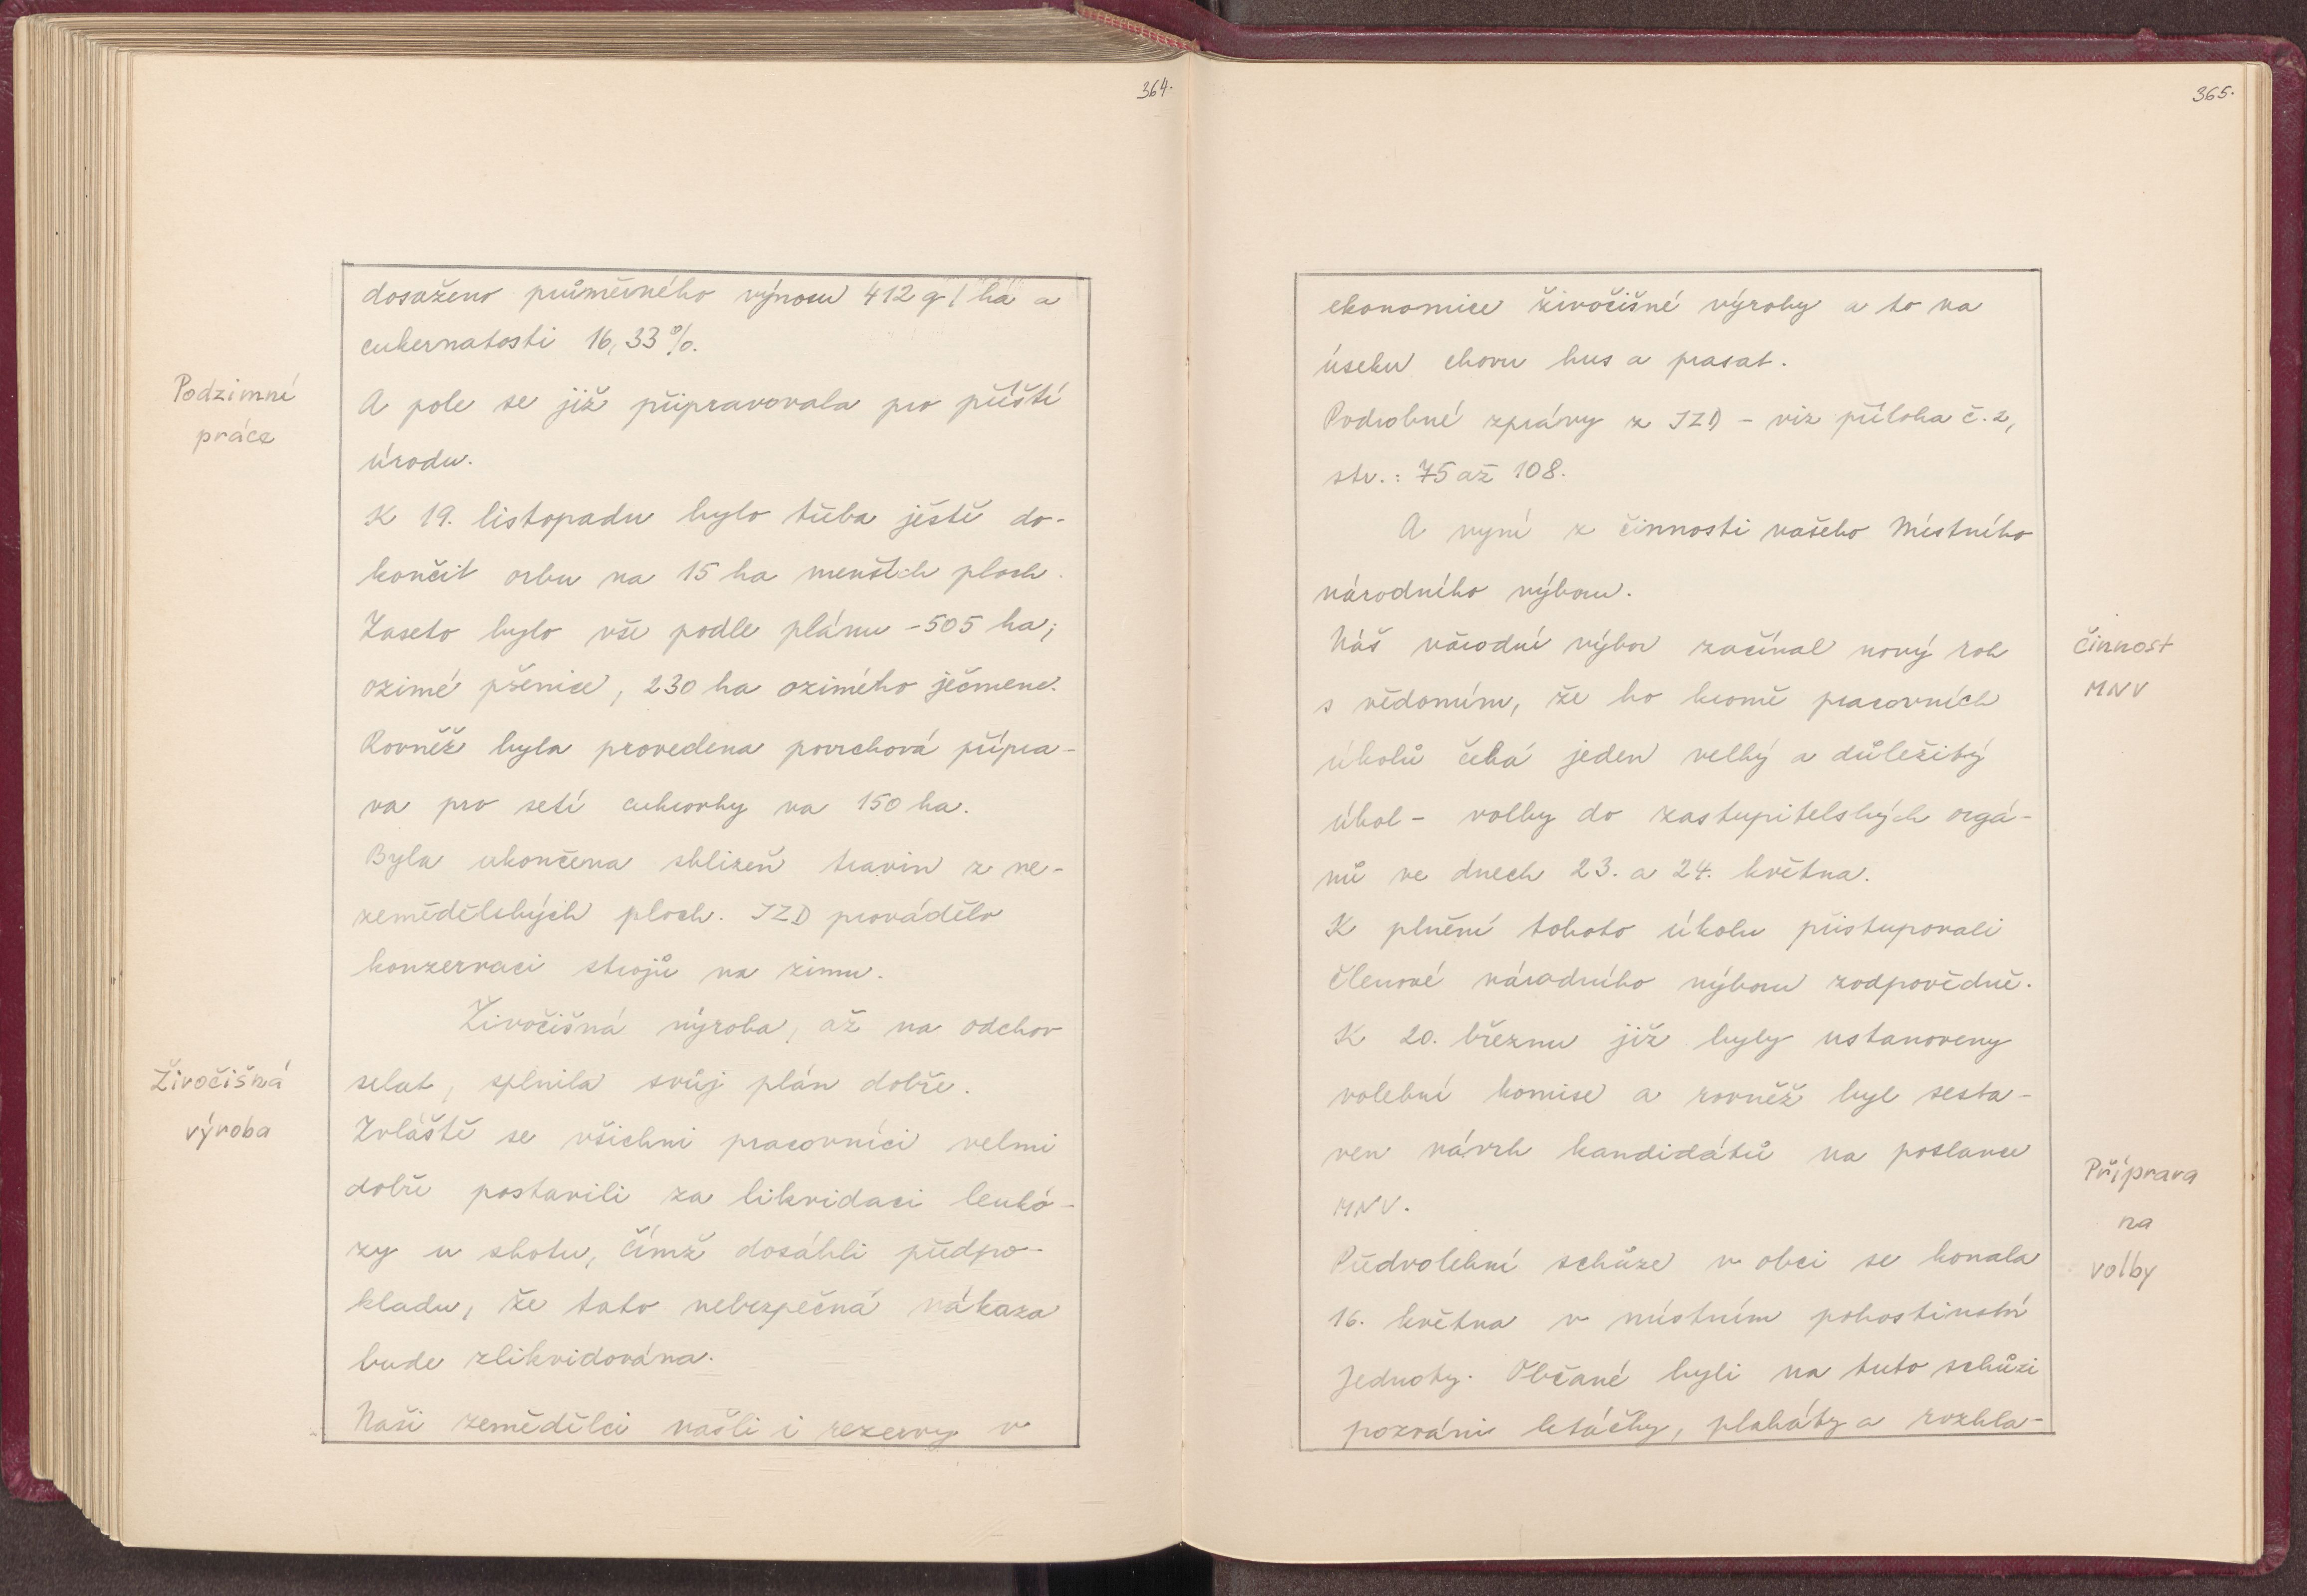 364.
dosaženo průměrného výnosu 412 q/ha a
cukernatosti 16,33%.
Podzimní
práce
A pole se již připravovala pro příští
úrodu.
K 19. listopadu bylo třeba ještě do-
končit orbu na 15 ha menších ploch.
Zaseto bylo vše podle plánu - 505 ha;
ozimé pšenice, 230 ha ozimého ječmene.
Rovněž byla provedena povrchová přípra-
va pro setí cukrovky na 150 ha.
Byla ukončena sklizeň travin z ne-
zemědělských ploch. JZD provádělo
konzervaci strojů na zimu.
Živočišná
výroba
Živočišná výroba, až na odchov
selat, splnila svůj plán dobře.
Zvláště se všichni pracovníci velmi
dobře postavili za likvidaci leukó-
zy u skotu, čímž dosáhli předpo-
kladu, že tato nebezpečná nákaza
bude zlikvidována.
Naši zemědělci našli i rezervy v
365.
ekonomice živočišné výroby a to na
úseku chovu hus a prasat.
Podrobné zprávy z JZD - viz příloha č. 2,
str.: 75 až 108.
A nyní z činnosti našeho Místního
národního výboru.
činnost
MNV
Náš národní výbor začínal nový rok
s vědomím, že ho kromě pracovních
úkolů čeká jeden velký a důležitý
úkol - volby do zastupitelských orgá-
nů ve dnech 23. a 24. května.
K plnění tohoto úkolu přistupovali
členové národního výboru zodpovědně.
K 20. březnu již byly ustanoveny
volební komise a rovněž byl sesta-
ven návrh kandidátů na poslance
MNV.
Příprava
na
volby
Předvolební schůze v obci se konala
16. května v místním pohostinství
Jednoty. Občané byli na tuto schůzi
pozváni letáčky, plakáty a rozhla-